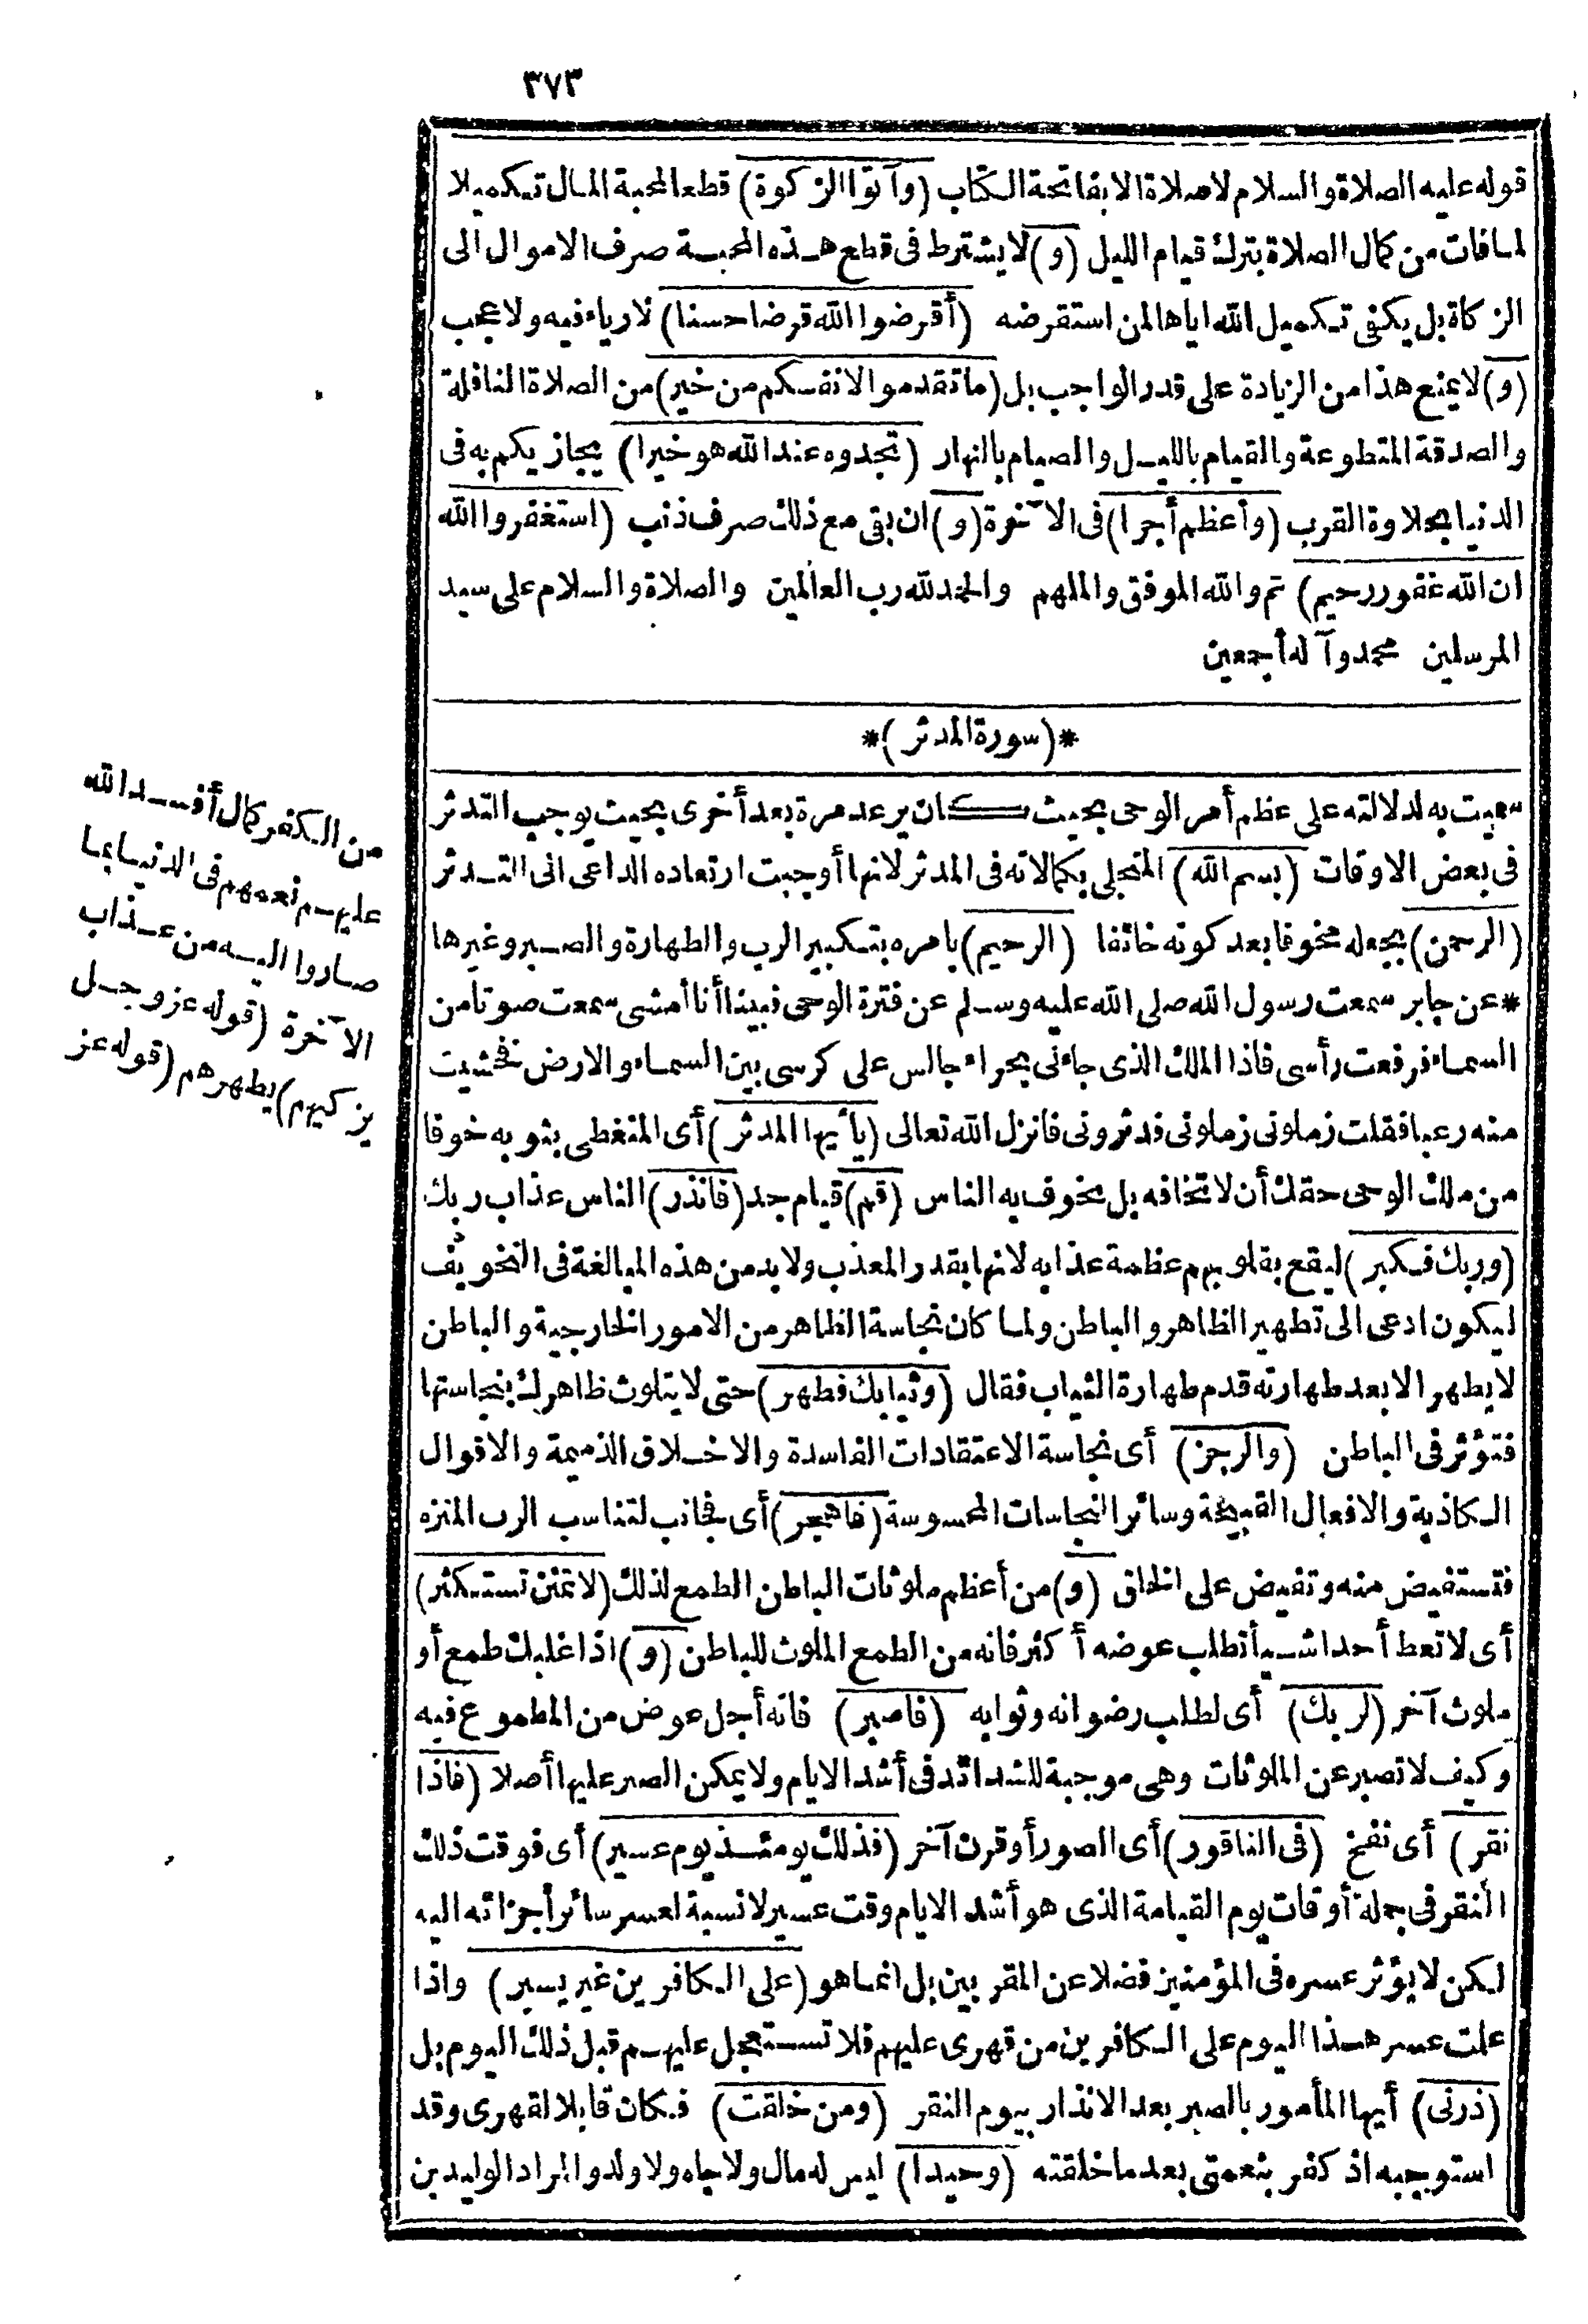 ٣٧٣
قوله عليه الصلاة والسلام لا صلاة الا بفاتحة الكتاب (وآتوا الزكوة) قطعا لمحبة المال تكميلا
لما فات من كمال الصلاة بترك قيام الليل (و) لا يشترط فى قطع هذه المحبة صرف الاموال الى
الزكاة بل يكفى تكميل الله اياها لمن استقرضه (أقرضوا الله قرضا حسنا) لا رياء فيه ولا عجب
(و) لا يمنع هذا من الزيادة على قدر الواجب بل (ما تقدموا لانفسكم من خير) من الصلاة النافلة
والصدقة المتطوعة والقيام بالليل والصيام بالنهار (تجدوه عند الله هو خيرا) يجازيكم به فى
الدنيا بحلاوة القرب (وأعظم أجرا) فى الآخرة (و) ان بقى مع ذلك صرف ذنب (استغفروا الله
ان الله غفور رحيم) تم والله الموفق والملهم والحمد لله رب العالمين والصلاة والسلام على سيد
المرسلين محمد وآله أجمعين
*(سورة المدثر)*
سميت به لدلالته على عظم أمر الوحى بحيث كان يرعد مرة بعد أخرى بحيث يوجب التدثر
فى بعض الاوقات (بسم الله) المتجلى بكمالاته فى المدثر لانها أوجبت ارتعاده الداعى الى التدثر
(الرحمن) بجعله مخوفا بعد كونه خائفا (الرحيم) بامره بتكبير الرب والطهارة والصبر وغيرها
*عن جابر سمعت رسول الله صلى الله عليه وسلم عن فترة الوحى فبينا أنا أمشى سمعت صوتا من
السماء فرفعت رأسى فاذا الملك الذى جاءنى بحراء جالس على كرسى بين السماء والارض فخشيت
منه رعبا فقلت زملونى زملونى فدثرونى فانزل الله تعالى (يا أيها المدثر) أى المتغطى بثوبه خوفا
من ملك الوحى حقك أن لا تخافه بل يخوف به الناس (قم) قيام جد (فانذر) الناس عذاب ربك
(وربك فكبر) ليقع بقلوبهم عظمة عذابه لانها بقدر المعذب ولا بد من هذه المبالغة فى التخويف
ليكون ادعى الى تطهير الظاهر والباطن ولما كان نجاسة الظاهر من الامور الخارجية والباطن
لا يطهر الا بعد طهارته قدم طهارة الثياب فقال (وثيابك فطهر) حتى لا يتلوث ظاهرك بنجاستها
فتؤثر فى الباطن (والرجز) أى نجاسة الاعتقادات الفاسدة والاخلاق الذميمة والاقوال
الكاذبة والافعال القبيحة وسائر النجاسات المحسوسة (فاهجر) أى فجانب لتناسب الرب المنزه
فتستفيض منه وتفيض على الخلق (و) من أعظم ملوثات الباطن الطمع لذلك (لا تمنن تستكثر)
أى لا تعط أحدا شيأ تطلب عوضه أكثر فانه من الطمع الملوث للباطن (و) اذا غلبك طمع أو
ملوث آخر (لربك) أى لطلب رضوانه وثوابه (فاصبر) فانه أجل عوض من المطموع فيه
وكيف لا تصبر عن الملوثات وهى موجبة للشدائد فى أشد الايام ولا يمكن الصبر عليها أصلا (فاذا
نقر) أى نفخ (فى الناقور) أى الصور أو قرن آخر (فذلك يومئذ يوم عسير) أى فوقت ذلك
النقر فى جملة أوقات يوم القيامة الذى هو أشد الايام وقت عسير لا نسبة لعسر سائر أجزائه اليه
لكن لا يؤثر عسره فى المؤمنين فضلا عن المقربين بل انما هو (على الكافرين غير يسير) واذا
علمت عسر هذا اليوم على الكافرين من قهرى عليهم فلا تستعجل عليهم قبل ذلك اليوم بل
(ذرنى) أيها المأمور بالصبر بعد الانذار بيوم النقر (ومن خلقت) فكان قابلا لقهرى وقد
استوجبه اذ كفر بنعمتى بعد ما خلقته (وحيدا) ليس له مال ولا جاه ولا ولد والمراد الوليد بن
من الكفر كمال أفسد الله
عليهم نعمهم فى الدنيا بما
صاروا اليه من عذاب
الآخرة (قوله عز وجل
يزكيهم) يطهرهم (قوله عز